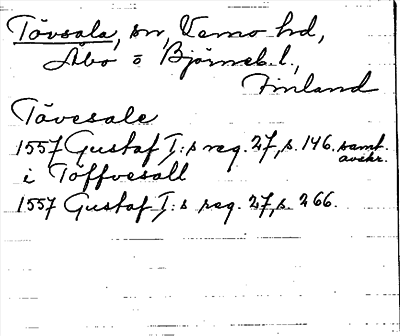 Tövsala, sn, Vemo hd,
Åbo o Björneb. l.,
Finland
Tövesale
1557 Gustaf I:s reg. 27, s. 146. samt.
avskr.
i Töffvesall
1557 Gustaf I:s reg. 27, s. 266.